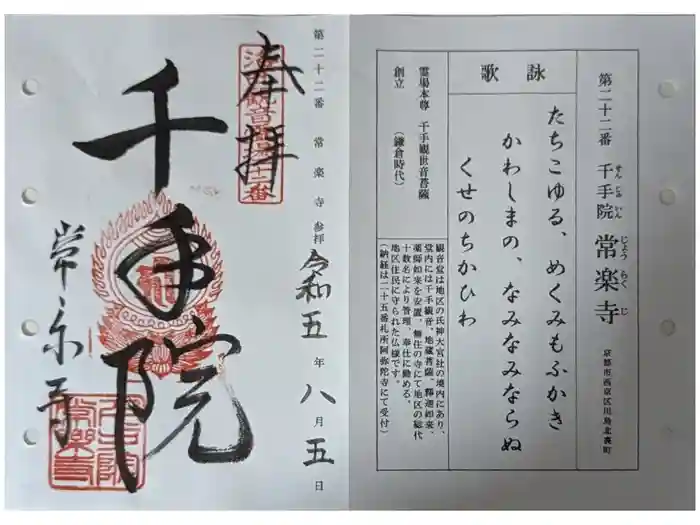 第二十二番 常楽寺 参拝 令和五年八月五日
奉拝
千手院
常楽寺
第二十二番 千手院 常楽寺
せん じゅ いん じょう らく じ
京都市西京区川島北裏町
詠歌
たちこゆる、めくみもふかき
かわしまの、なみなみならぬ
くせのちかひわ
霊場本尊 千手観世音菩薩
創立 (鎌倉時代)
観音堂は地区の氏神大宮社の境内にあり、
堂内には千手観音、地蔵菩薩、釋迦如来、
薬師如来を安置。無住の寺にて地区の総代
十数名により管理、奉仕に勤める。
地区住民に守られた仏様です。
(納経は二十五番札所阿弥陀寺にて受付)